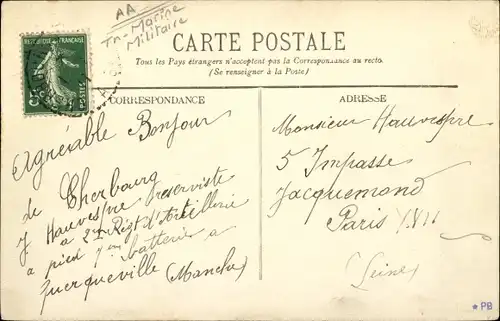 AA
Tn-Marine
Militaire
REPUBLIQUE FRANÇAISE
POSTES
CARTE POSTALE
Tous les Pays étrangers n'acceptent pas la Correspondance au recto.
(Se renseigner à la Poste)
CORRESPONDANCE
Agréable Bonjour
de Cherbourg
J Hauvespre reserviste
a 2me Regt d'Artillerie
a pied 7me batterie a
Querqueville (Manche)
ADRESSE
Monsieur Hauvespre
5 Impasse
Jacquemond
Paris XVII
Seine
*PB